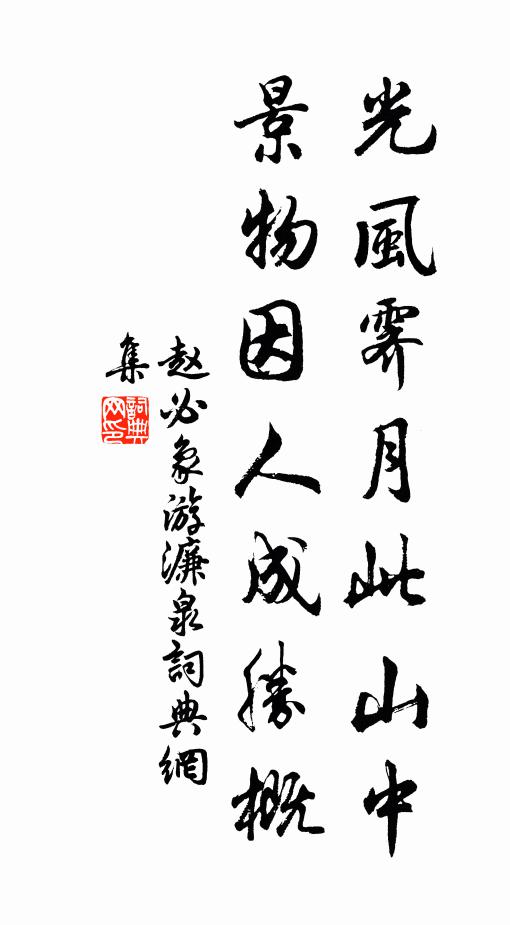 光風霽月此山中
景物因人成勝概
赵必象游濂泉詞典網
集
詞典網印